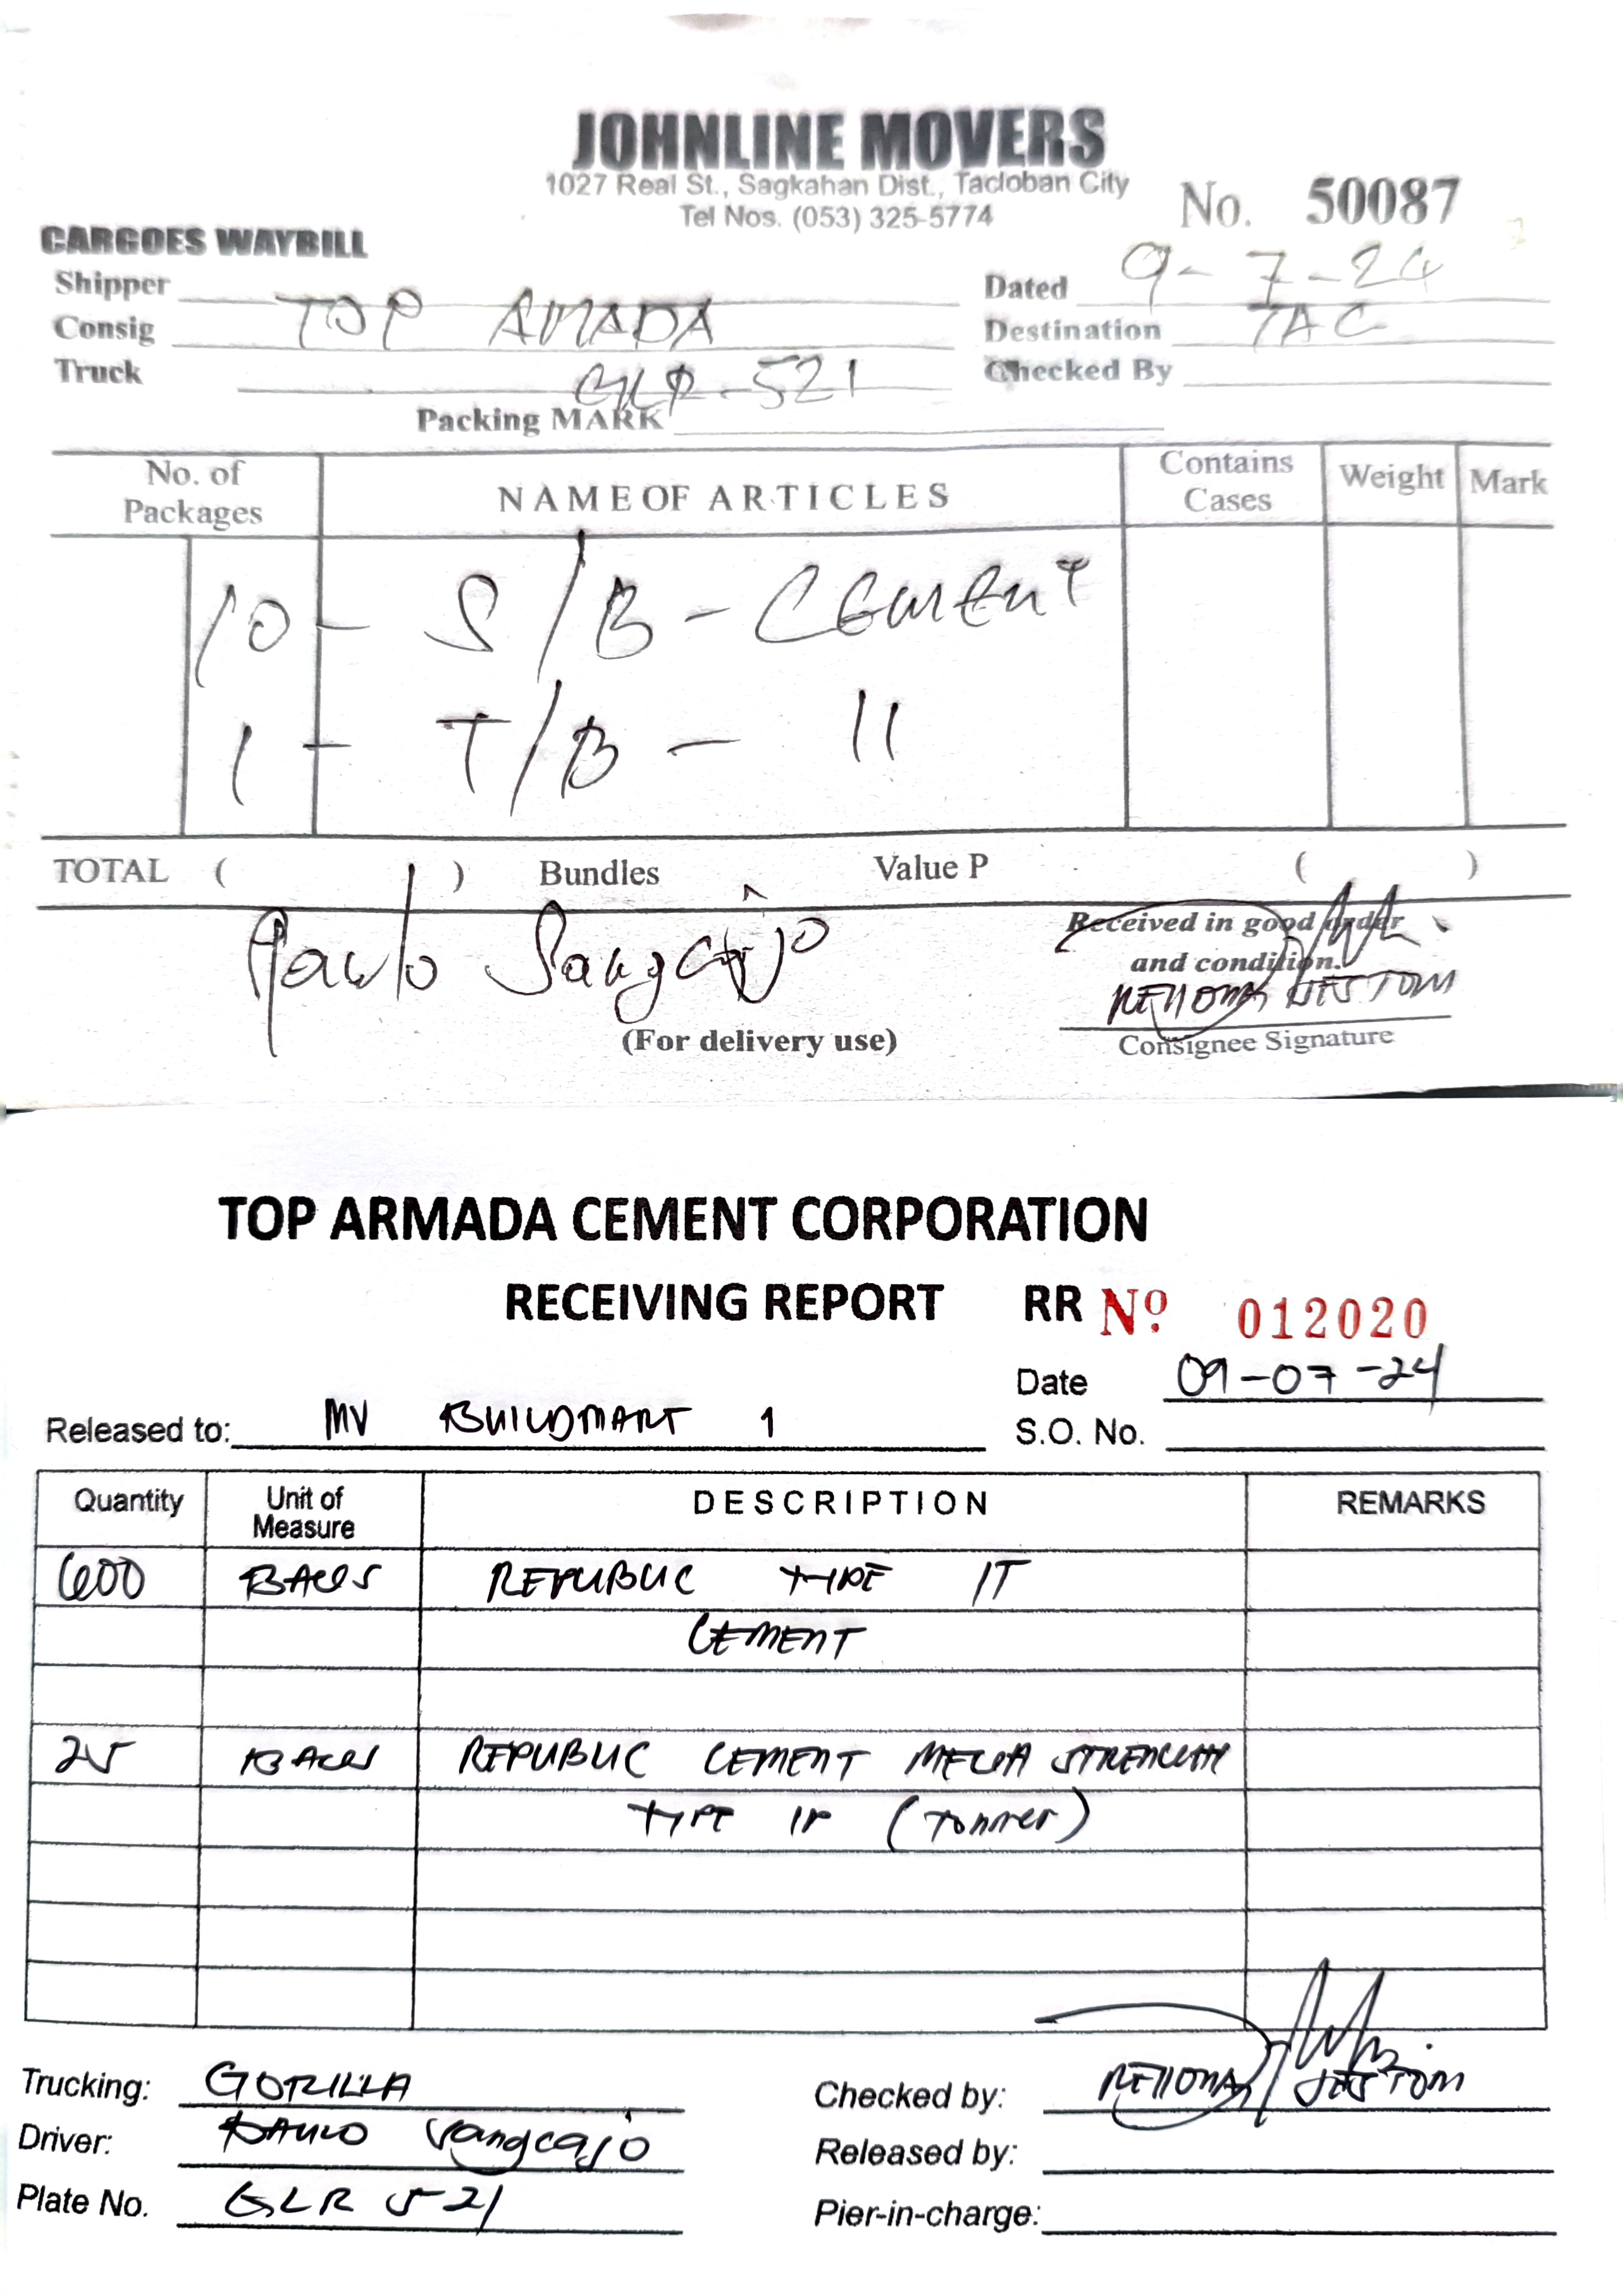 JOHNLINE MOVERS
1027 Real St., Sagkahan Dist., Tacloban City
Tel Nos. (053) 325-5774
No. 50087
CARGOES WAYBILL
Shipper
Dated 9-7-24
Consig TOP AMADA
Destination TAC
Truck GLR-521
Checked By
Packing MARK
No. of Packages NAME OF ARTICLES Contains Cases Weight Mark
10 - S/B - CEMENT
1 - T/B - 11
TOTAL ( ) Bundles Value P ( )
Paulo Sangcajo
Received in good order
and condition.
(For delivery use)
Consignee Signature
TOP ARMADA CEMENT CORPORATION
RECEIVING REPORT RR Nº 012020
Date 09-07-24
Released to: MV BUILDMART 1
S.O. No.
Quantity Unit of Measure DESCRIPTION REMARKS
600 BAGS REPUBLIC TYPE 1T
CEMENT
25 BAGS REPUBLIC CEMENT MEGA STRENGTH
TYPE 1P (TONNER)
Trucking: GORILLA
Checked by:
Driver: PAULO Sangcajo
Released by:
Plate No. GLR 521
Pier-in-charge: